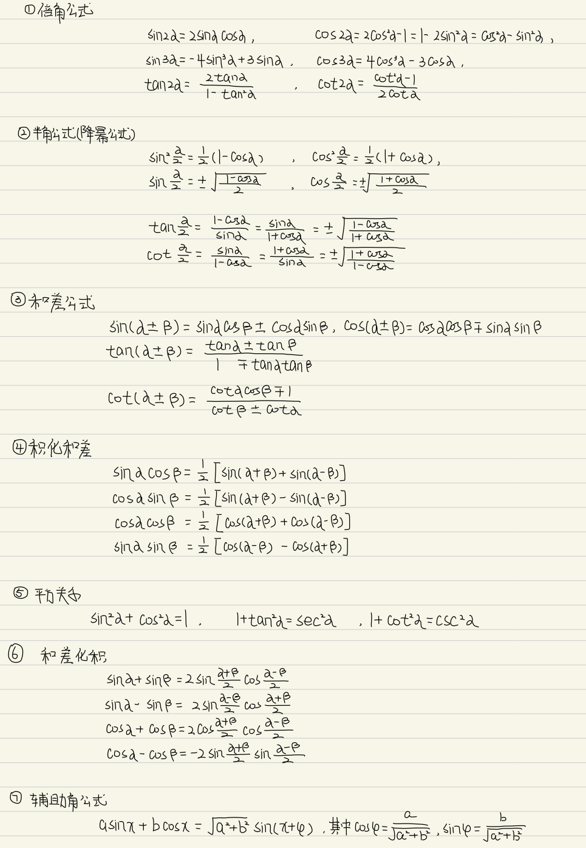 ①倍角公式
sin2α=2sinαcosα, cos2α=2cos²α-1=1-2sin²α=cos²α-sin²α,
sin3α=-4sin³α+3sinα. cos3α=4cos³α-3cosα,
tan2α=2tanα/(1-tan²α) , cot2α=(cot²α-1)/(2cotα)
②半角公式(降幂公式)
sin²α/2=1/2(1-cosα) , cos²α/2=1/2(1+cosα),
sin α/2=±√((1-cosα)/2) , cos α/2=±√((1+cosα)/2)
tan α/2=(1-cosα)/sinα=sinα/(1+cosα)=±√((1-cosα)/(1+cosα))
cot α/2=sinα/(1-cosα)=(1+cosα)/sinα=±√((1+cosα)/(1-cosα))
③和差公式
sin(α±β)=sinαcosβ±cosαsinβ, cos(α±β)=cosαcosβ∓sinαsinβ
tan(α±β)=(tanα±tanβ)/(1∓tanαtanβ)
cot(α±β)=(cotαcosβ∓1)/(cotβ±cotα)
④积化和差
sinαcosβ=1/2[sin(α+β)+sin(α-β)]
cosαsinβ=1/2[sin(α+β)-sin(α-β)]
cosαcosβ=1/2[cos(α+β)+cos(α-β)]
sinαsinβ=1/2[cos(α-β)-cos(α+β)]
⑤平方关系
sin²α+cos²α=1. 1+tan²α=sec²α , 1+cot²α=csc²α
⑥ 和差化积
sinα+sinβ=2sin (α+β)/2 cos (α-β)/2
sinα-sinβ=2sin (α-β)/2 cos (α+β)/2
cosα+cosβ=2cos (α+β)/2 cos (α-β)/2
cosα-cosβ=-2sin (α+β)/2 sin (α-β)/2
⑦ 辅助角公式
asinx+bcosx=√(a²+b²) sin(x+φ), 其中cosφ=a/√(a²+b²), sinφ=b/√(a²+b²)